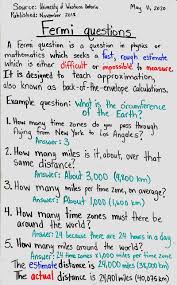 Source: University of Western Ontario
Published: November 2018
May 11, 2020
Fermi questions
A Fermi question is a question in physics or
mathematics which seeks a fast, rough estimate
which is either difficult or impossible to measure.
It is designed to teach approximation,
also known as back-of-the-envelope calculations.
Example question: what is the circumference
of the Earth?
1. How many time zones do you pass through
flying from New York to Los Angeles?
Answer: 3
2. How many miles is it, about, over that
same distance?
Answer: About 3,000 (4,800 km)
3. How many miles per time zone, on average?
Answer: About 1,000 (1,600 km)
4. How many time zones must there be
around the world?
Answer: 24 because there are 24 hours in a day
5. How many miles around the world?
Answer: 24 time zones x 1,000 miles per time zone
The estimate distance is 24,000 miles (38,600 km)
The actual distance is 24,901 miles (40,075 km)